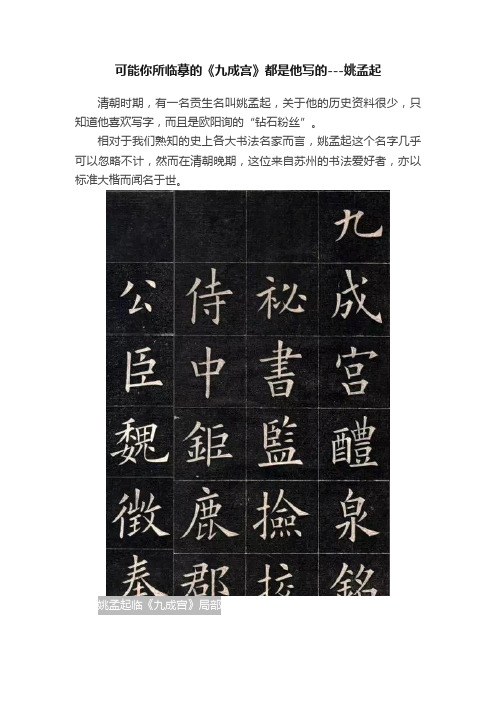 可能你所临摹的《九成宫》都是他写的---姚孟起
清朝时期，有一名贡生名叫姚孟起，关于他的历史资料很少，只
知道他喜欢写字，而且是欧阳询的“钻石粉丝”。
相对于我们熟知的史上各大书法名家而言，姚孟起这个名字几乎
可以忽略不计，然而在清朝晚期，这位来自苏州的书法爱好者，亦以
标准大楷而闻名于世。
九成宮醴泉銘
祕書監撿挍
侍中鉅鹿郡
公臣魏徵奉
姚孟起临《九成宫》局部